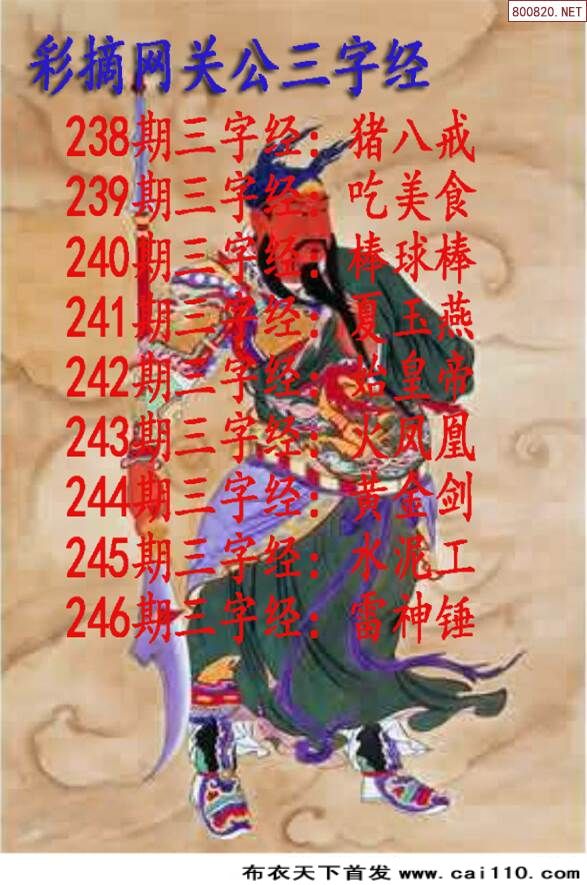 800820.NET
彩摘网关公三字经
238期三字经：猪八戒
239期三字经：吃美食
240期三字经：棒球棒
241期三字经：夏玉燕
242期三字经：始皇帝
243期三字经：火凤凰
244期三字经：黄金剑
245期三字经：水泥工
246期三字经：雷神锤
布衣天下首发 www.cai110.com